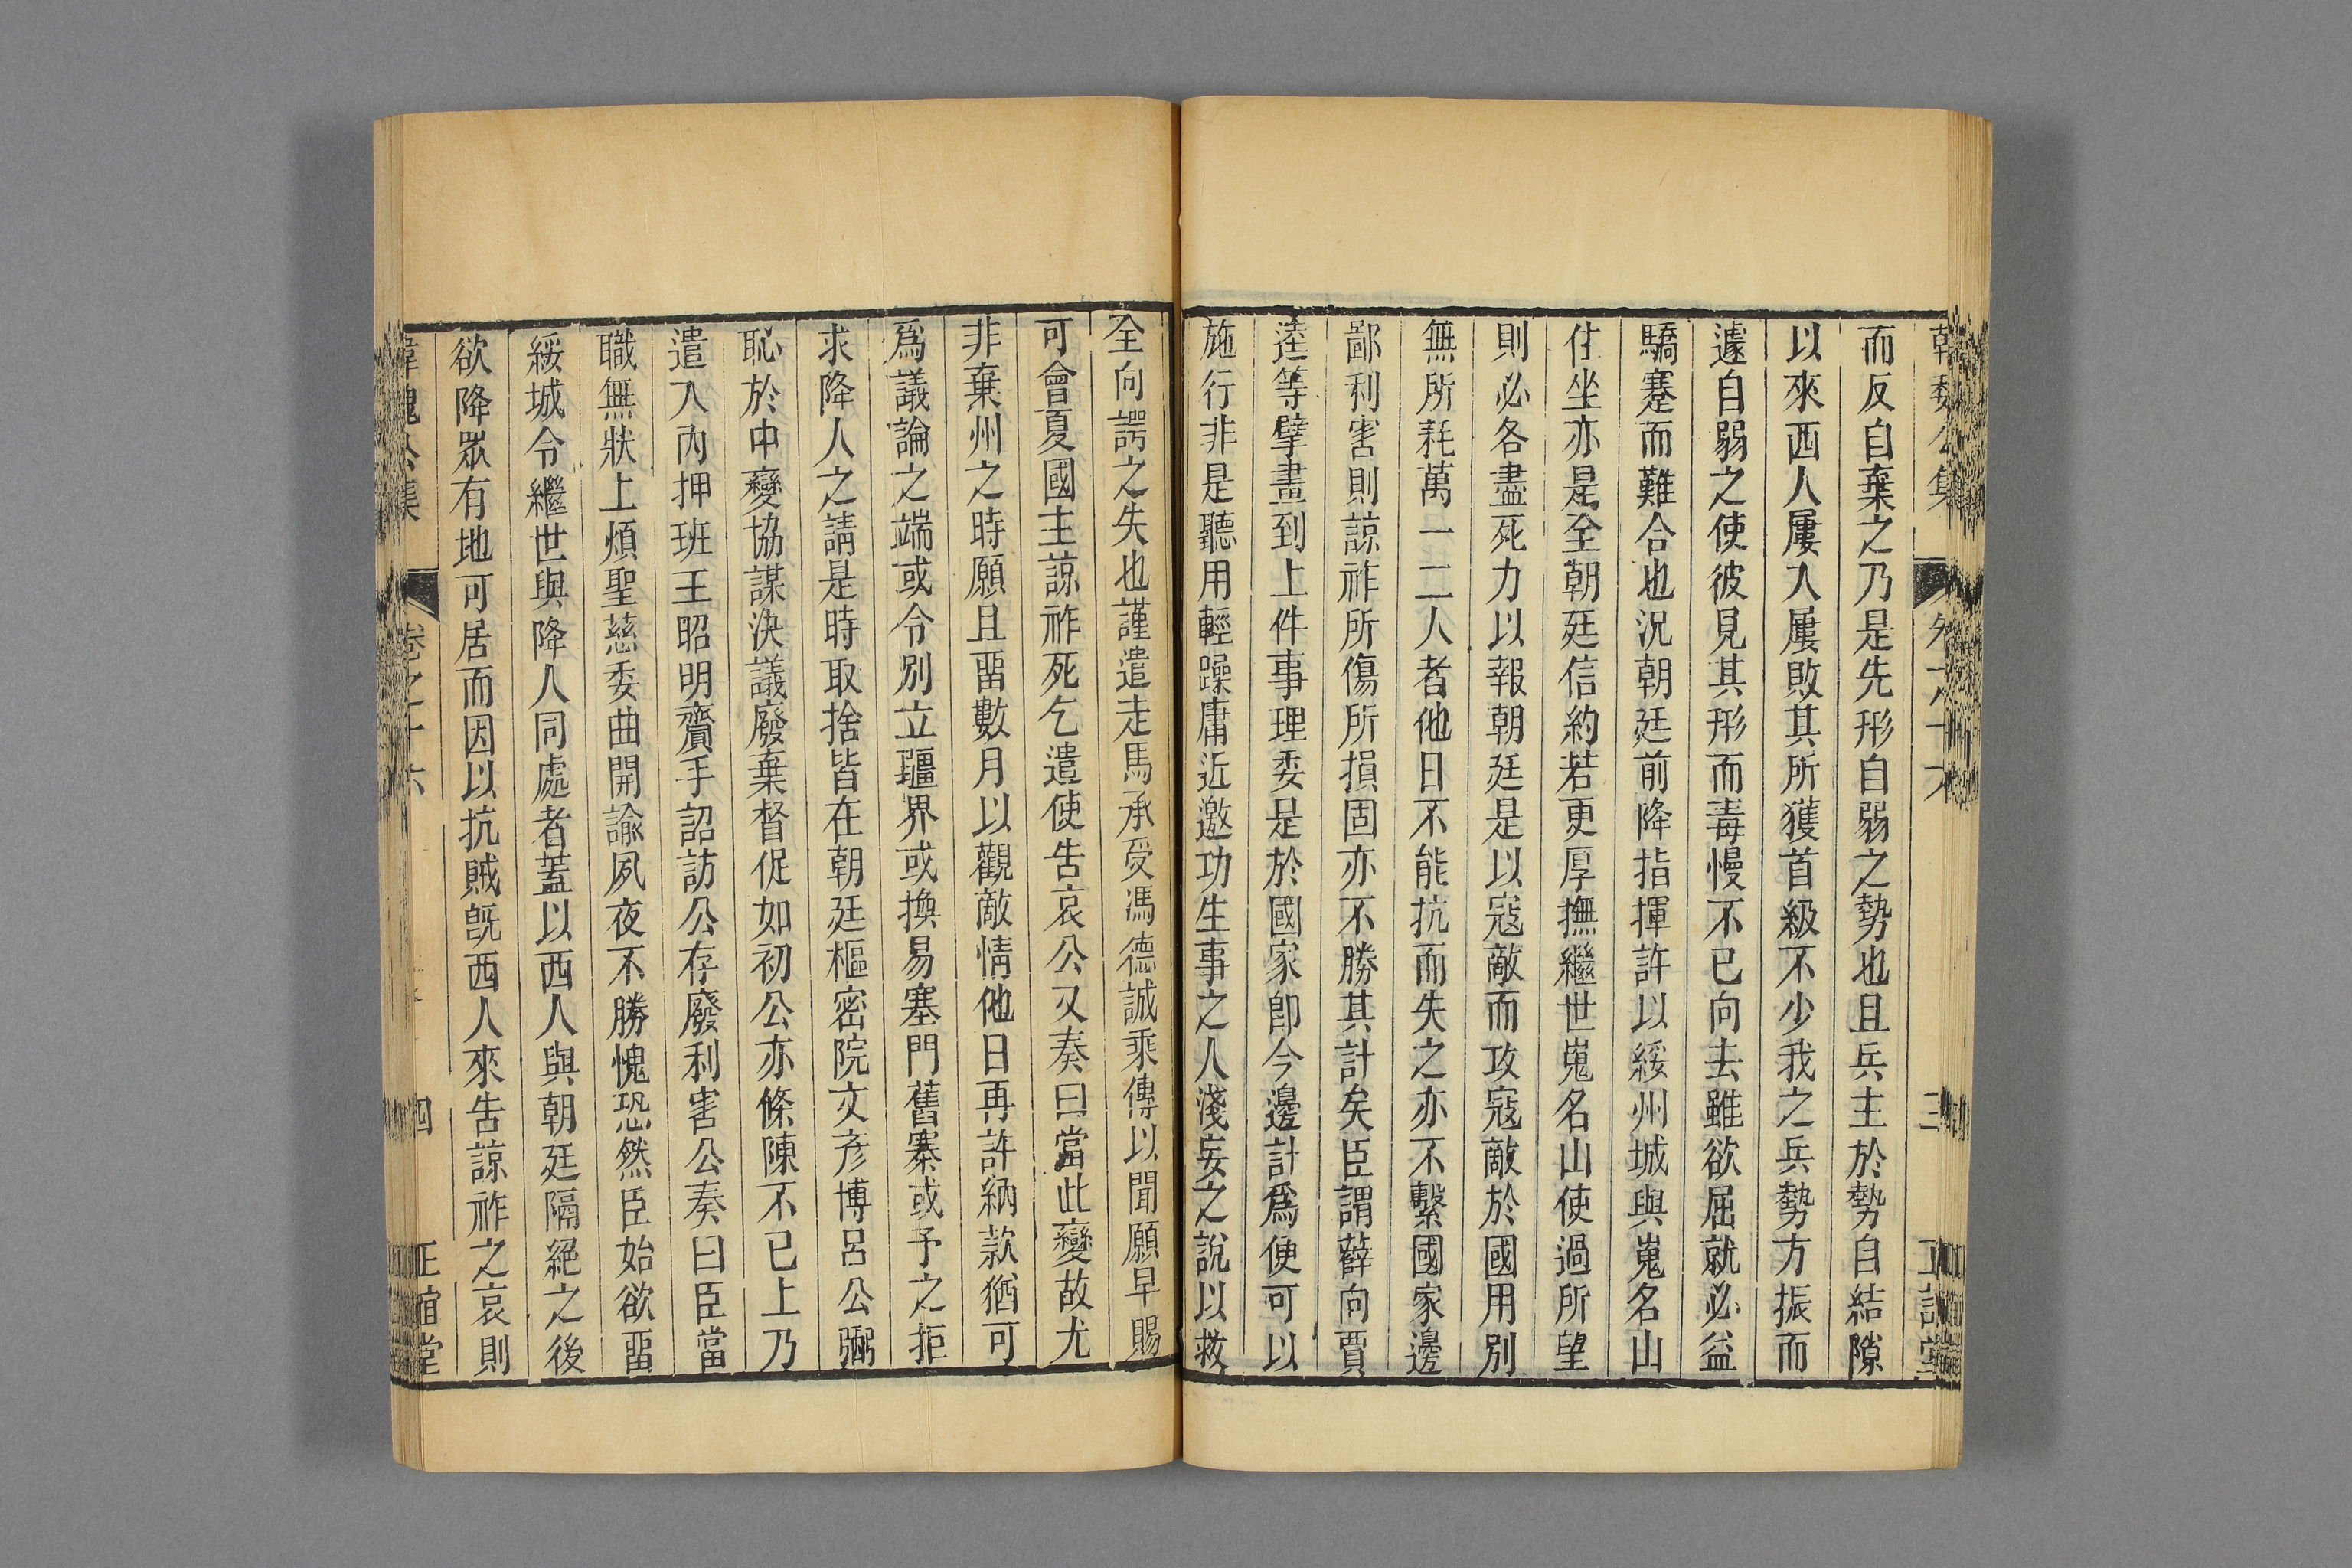 而反自棄之乃是先形自弱之勢也且兵主於勢自結隙
以來西人屢入屢敗其所獲首級不少我之兵勢方振而
遽自弱之使彼見其形而毒慢不已向去雖欲屈就必益
驕蹇而難合也況朝廷前降指揮許以綏州城與嵬名山
住坐亦是全朝廷信約若更厚撫繼世嵬名山使過所望
則必各盡死力以報朝廷是以寇敵而攻寇敵於國用別
無所耗萬一二人者他日不能抗而失之亦不繫國家邊
鄙利害則諒祚所傷所損固亦不勝其計矣臣謂薛向賈
逵等擘畫到上件事理委是於國家即今邊計爲便可以
施行非是聽用輕躁庸近邀功生事之人淺妄之說以救
全向諤之失也謹遣走馬承受馮德誠乘傳以聞願早賜
可會夏國主諒祚死乞遣使告哀公又奏曰當此變故尤
非棄州之時願且畱數月以觀敵情他日再許納款猶可
爲議論之端或令別立疆界或換易塞門舊寨或予之拒
求降人之請是時取捨皆在朝廷樞密院文彥博呂公弼
恥於中變協謀決議廢棄督促如初公亦條陳不已上乃
遣入內押班王昭明齎手詔訪公存廢利害公奏曰臣當
職無狀上煩聖慈委曲開諭夙夜不勝愧恐然臣始欲畱
綏城令繼世與降人同處者蓋以西人與朝廷隔絕之後
欲降眾有地可居而因以抗賊旣西人來告諒祚之哀則
卷之十六
四
正誼堂